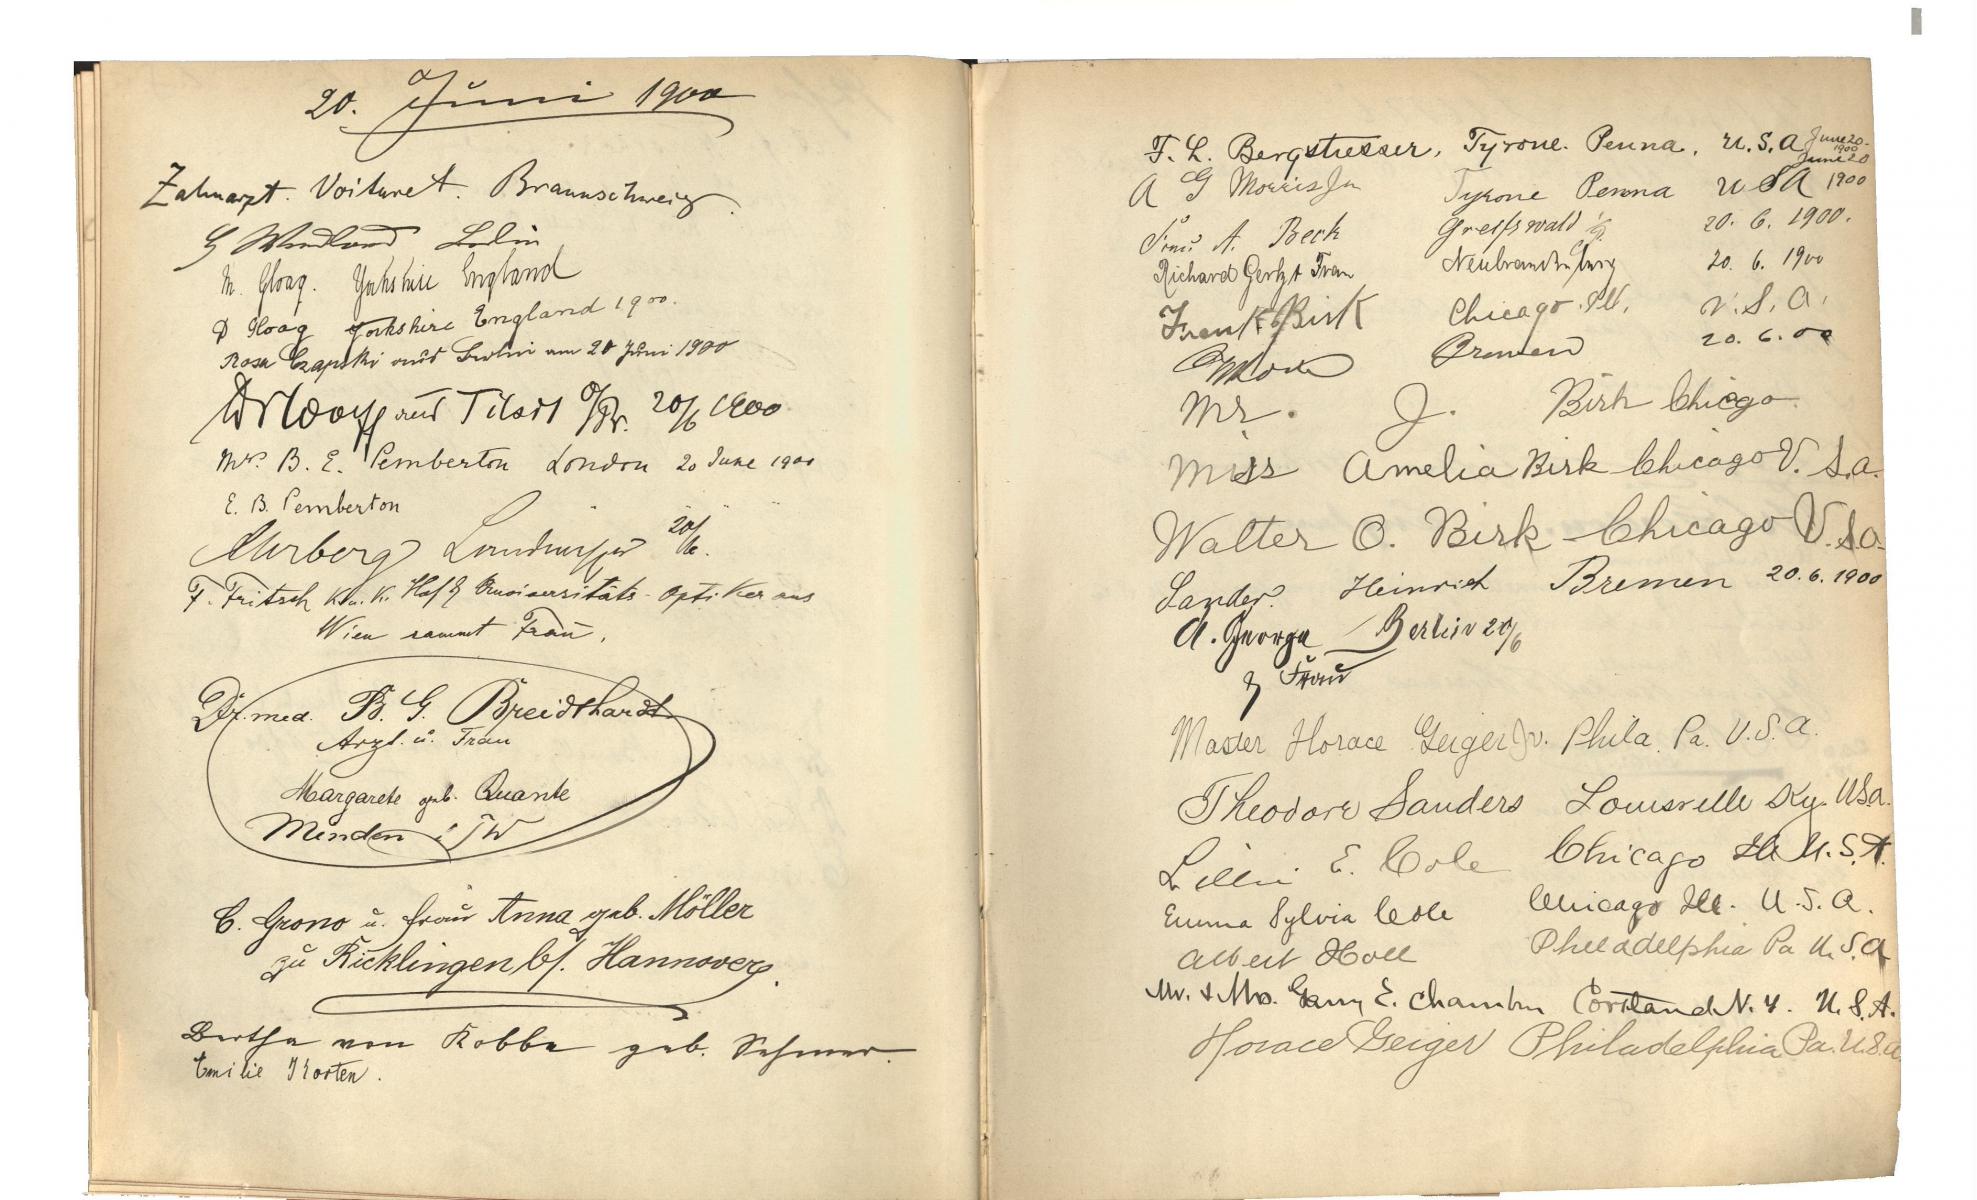 20. Juni 1900
Zahnarzt. Voituret. Braunschweig.
G Wendland Berlin
M. Gloag. Yorkshire England
D Hoag Yorkshire England 1900.
Rosa Czapski aus Berlin am 20 Juni 1900
aus Tilsit O/Pr. 20/6 1900
Mrs. B. E. Pemberton London 20 June 1900
E. B. Pemberton
20/6.
F. Fritsch K. u. K. Hof & Universitäts-Optiker aus
Wien sammt Frau.
Dr. med. B. G. Breidthardt
Arzt. u. Frau
Margarete geb. Quante
Minden i/W
C. Grono u. Frau Anna geb. Möller
zu Ricklingen b/. Hannover.
Bertha von Kobbe geb. Sehmer.
Emilie Korten.
F. L. Bergstresser, Tyrone. Penna, U.S.A June 20-1900
A G Morris Jr Tyrone Penna U S A June 20 1900
Frau A. Beck Greifswald 20. 6. 1900.
Richard Frau Neubrandenburg 20. 6. 1900
Frank Birk Chicago. Ill. U.S.A.
Bremen 20.6.00
Mr. J. Birk Chicago.
Miss Amelia Birk Chicago U.S.a.
Walter O. Birk – Chicago U.S.a.
Sander. Heinrich Bremen 20.6.1900
A. George Berlin 20/6
& Frau
Master Horace Geiger Jr. Phila. Pa. U.S.a.
Theodore Sanders Louisville Ky. USa.
Lillie E. Cole Chicago Ill U.S.A.
Emma Sylvia Cole Chicago Ill. U.S.A.
Albert Holl Philadelphia Pa U.S.A
Mr. & Mrs. E. Cortland N.Y. U.S.A.
Horace Geiger Philadelphia Pa. U.S.a